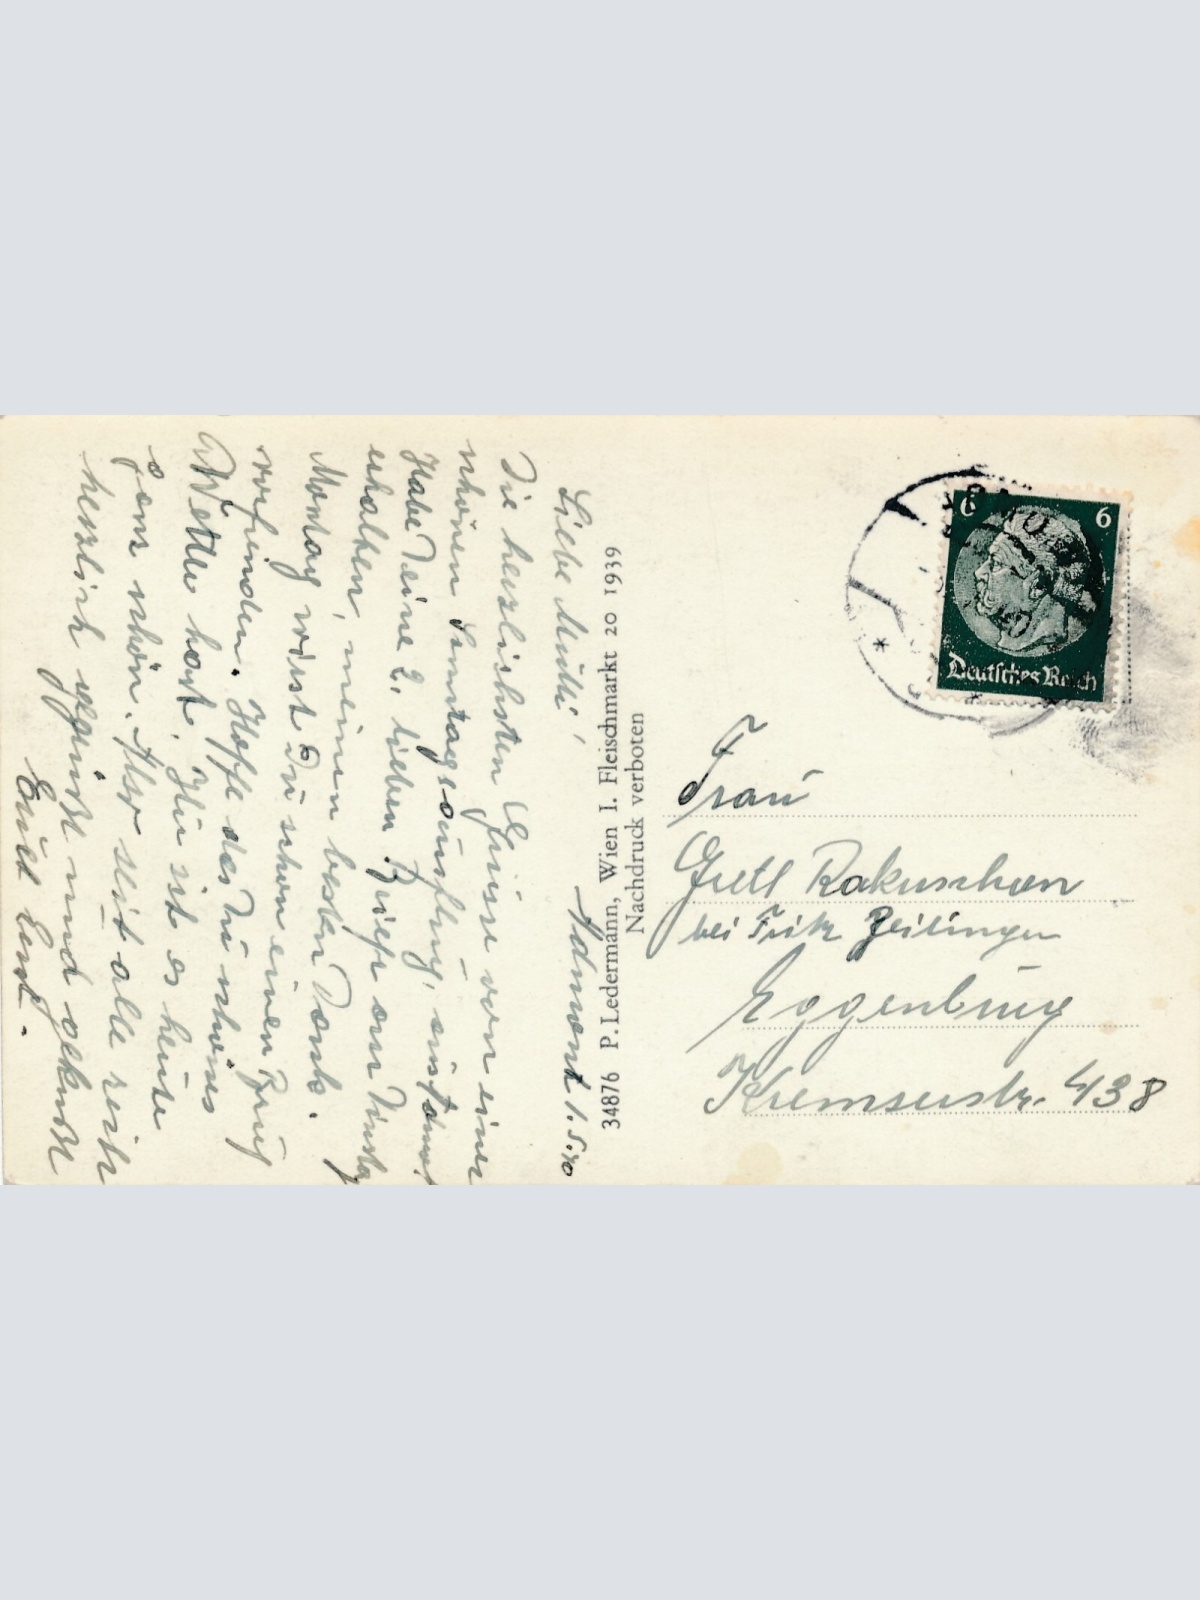 Admont 1.5.40
Liebe Mutti!
Die herzlichsten Grüsse von einen
schönen Sonntagsausflug, aus
Habe Deine 2. lieben Briefe am
erhalten, meinen besten Dank.
Montag wirst Du schon einen Brief
vorfinden. Hoffe das Du schönes
Wetter hast. Hier ist es heute
schön. Ihr seit alle recht
herzlich gegrüßt und geküßt
Eure
34876 P. Ledermann, Wien I. Fleischmarkt 20 1939
Nachdruck verboten
6 6
Deutsches Reich
Frau
Gretl Rakuschan
bei Fritz Zeilinger
Eggenburg
Kremserstr. 438